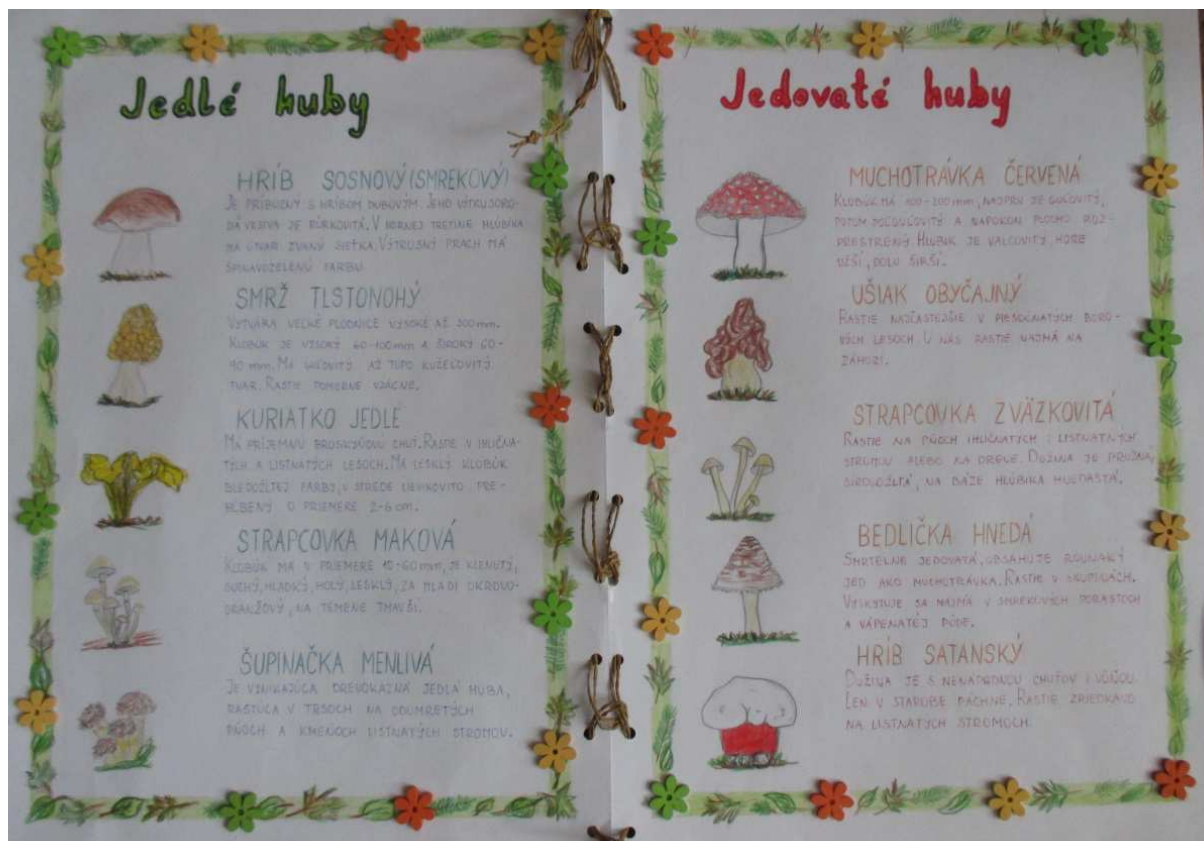 Jedlé huby
HRÍB SOSNOVÝ (SMREKOVÝ)
JE PRÍBUZNÝ S HRÍBOM DUBOVÝM. JEHO VÝTRUSORO-
DÁ VRSTVA JE RÚRKOVITÁ. V HORNEJ TRETINE HLÚBIKA
MÁ ÚTVAR ZVANÝ SIEŤKA. VÝTRUSNÝ PRACH MÁ
ŠPINAVOZELENÚ FARBU.
SMRŽ TLSTONOHÝ
VYTVÁRA VEĽKÉ PLODNICE VYSOKÉ AŽ 200mm.
KLOBÚK JE VYSOKÝ 60-100mm A ŠIROKÝ 60-
90 mm. MÁ GUĽOVITÝ AŽ TUPO KUŽEĽOVITÝ
TVAR. RASTIE POMERNE VZÁCNE.
KURIATKO JEDLÉ
MÁ PRÍJEMNÚ BROSKYŇOVÚ CHUŤ. RASTIE V IHLIČNA-
TÝCH A LISTNATÝCH LESOCH. MÁ LESKLÝ KLOBÚK
BLEDOŽLTEJ FARBY, V STREDE LIEVIKOVITO PRE-
HĹBENÝ O PRIEMERE 2-6 cm.
STRAPCOVKA MAKOVÁ
KLOBÚK MÁ V PRIEMERE 10-60mm, JE KLENUTÝ,
SUCHÝ, HLADKÝ HOLÝ, LESKLÝ, ZA MLADI OKROVO-
ORANŽOVÝ, NA TEMENE TMAVŠÍ.
ŠUPINAČKA MENLIVÁ
JE VYNIKAJÚCA DREVOKAZNÁ JEDLÁ HUBA,
RASTÚCA V TRSOCH NA ODUMRETÝCH
PŇOCH A KMEŇOCH LISTNATÝCH STROMOV.
Jedovaté huby
MUCHOTRÁVKA ČERVENÁ
KLOBÚK MÁ 100-200mm, NAJPRV JE GUĽOVITÝ,
POTOM POLGUĽOVITÝ A NAPOKON PLOCHO ROZ-
PRESTRENÝ. HLÚBIK JE VALCOVITÝ, HORE
UŽŠÍ, DOLU ŠIRŠÍ.
UŠIAK OBYČAJNÝ
RASTIE NAJČASTEJŠIE V PIESOČNATÝCH BORO-
VÝCH LESOCH. U NÁS RASTIE NAJMÄ NA
ZÁHORÍ.
STRAPCOVKA ZVÄZKOVITÁ
RASTIE NA PŇOCH IHLIČNATÝCH I LISTNATÝCH
STROMOV ALEBO NA DREVE. DUŽINA JE PRUŽNÁ,
SÍROVOŽLTÁ, NA BÁZE HLÚBIKA HRDZASTÁ.
BEDLIČKA HNEDÁ
SMRTEĽNE JEDOVATÁ, OBSAHUJE ROVNAKÝ
JED AKO MUCHOTRÁVKA. RASTIE V SKUPINÁCH.
VYSKYTUJE SA NAJMÄ V SMREKOVÝCH PORASTOCH
A VÁPENATEJ PÔDE.
HRÍB SATANSKÝ
DUŽINA JE S NENÁPADNOU CHUŤOU I VÔŇOU.
LEN V STAROBE PÁCHNE. RASTIE ZRIEDKAVO
NA LISTNATÝCH STROMOCH.